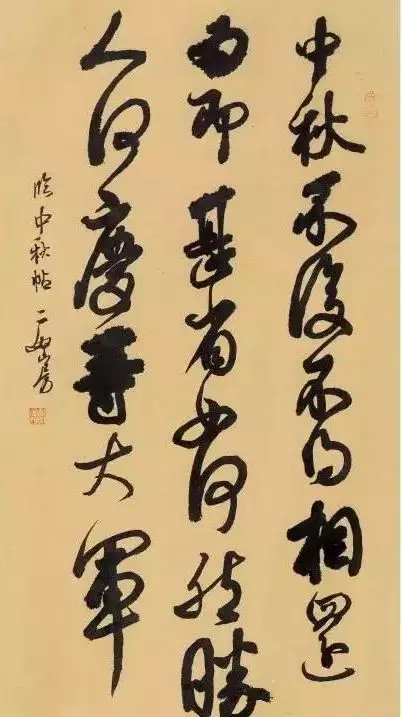 中秋不復不得相還
為即甚省如何然勝
人何慶等大軍
臨中秋帖